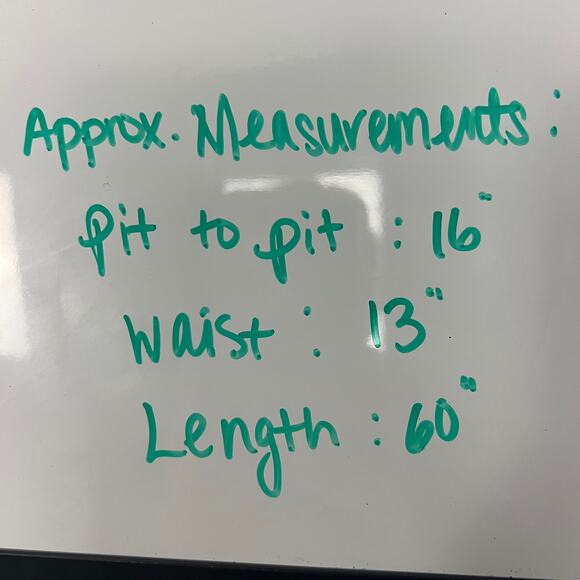 Approx. Measurements:
pit to pit : 16"
waist : 13"
Length : 60"